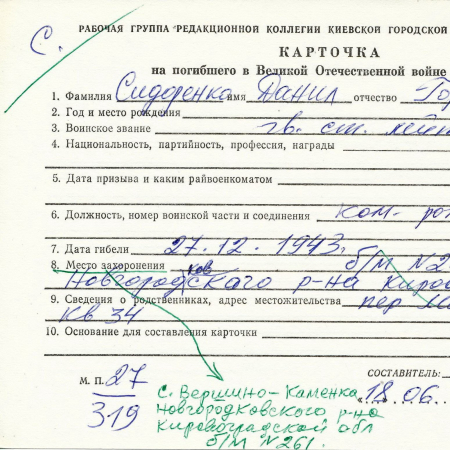 С.
РАБОЧАЯ ГРУППА РЕДАКЦИОННОЙ КОЛЛЕГИИ КИЕВСКОЙ ГОРОДСКОЙ
КАРТОЧКА
на погибшего в Великой Отечественной войне
1. Фамилия Сидоренко имя Данил отчество
2. Год и место рождения
3. Воинское звание гв. ст. лейт
4. Национальность, партийность, профессия, награды
5. Дата призыва и каким райвоенкоматом
6. Должность, номер воинской части и соединения ком- рот
7. Дата гибели 27.12.1943г.
8. Место захоронения б/м N2
Новгородковского р-на Киров
9. Сведения о родственниках, адрес местожительства пер
кв 34
10. Основание для составления карточки
СОСТАВИТЕЛЬ:
М. П. 27
319
"18" 06
с. Вершино-Каменка
Новгородковского р-на
Кировоградской обл
б/м N261.